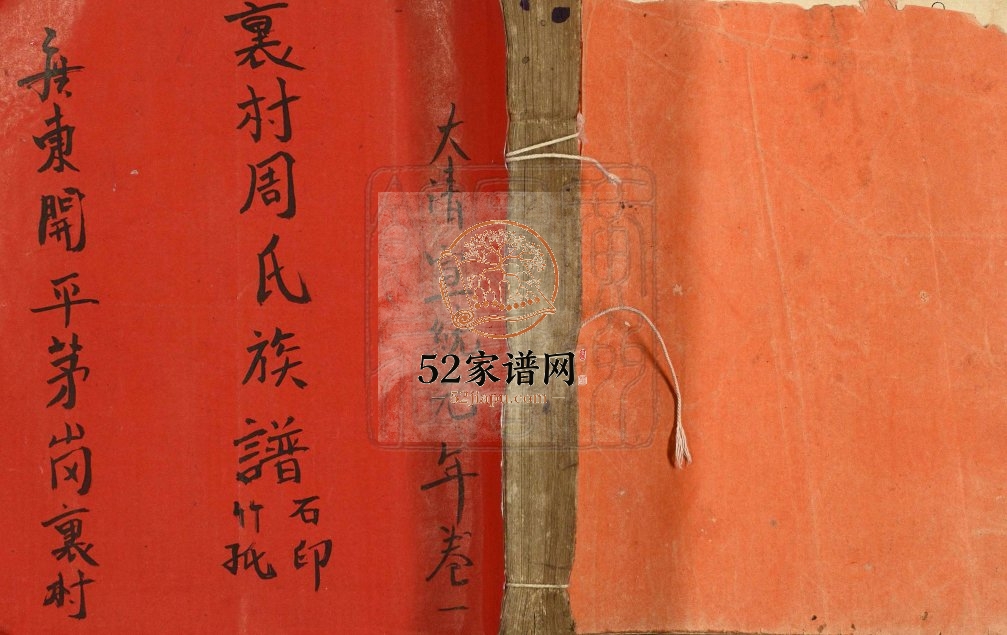 大清宣統元年卷一
裏村周氏族譜
石印
竹紙
廣東開平茅岗裏村
52家谱网
52jiapu.com